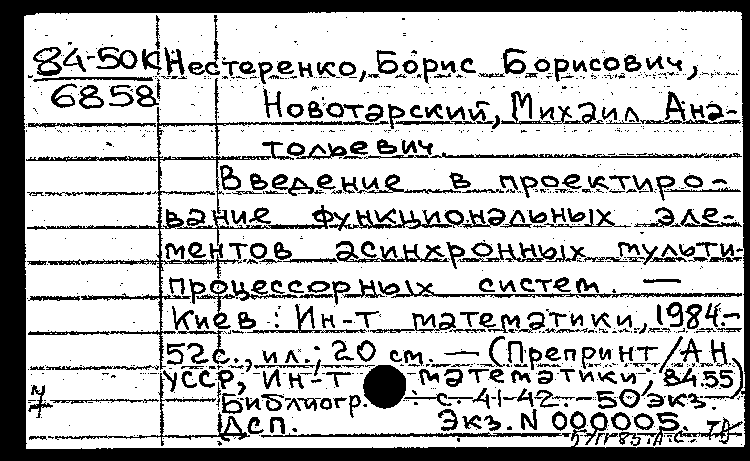 84-50К Нестеренко, Борис Борисович,
6858 Новотарский, Михаил Ана-
тольевич.
Введение в проектиро-
вание функциональных эле-
ментов асинхронных мульти-
процессорных систем. —
Киев : Ин-т математики, 1984.-
52с., ил.; 20 см. — (Препринт/АН
УССР, Ин-т математики; 84.55)
Библиогр.: с. 41-42. - 50 экз.
ДСП. Экз. N 000005.